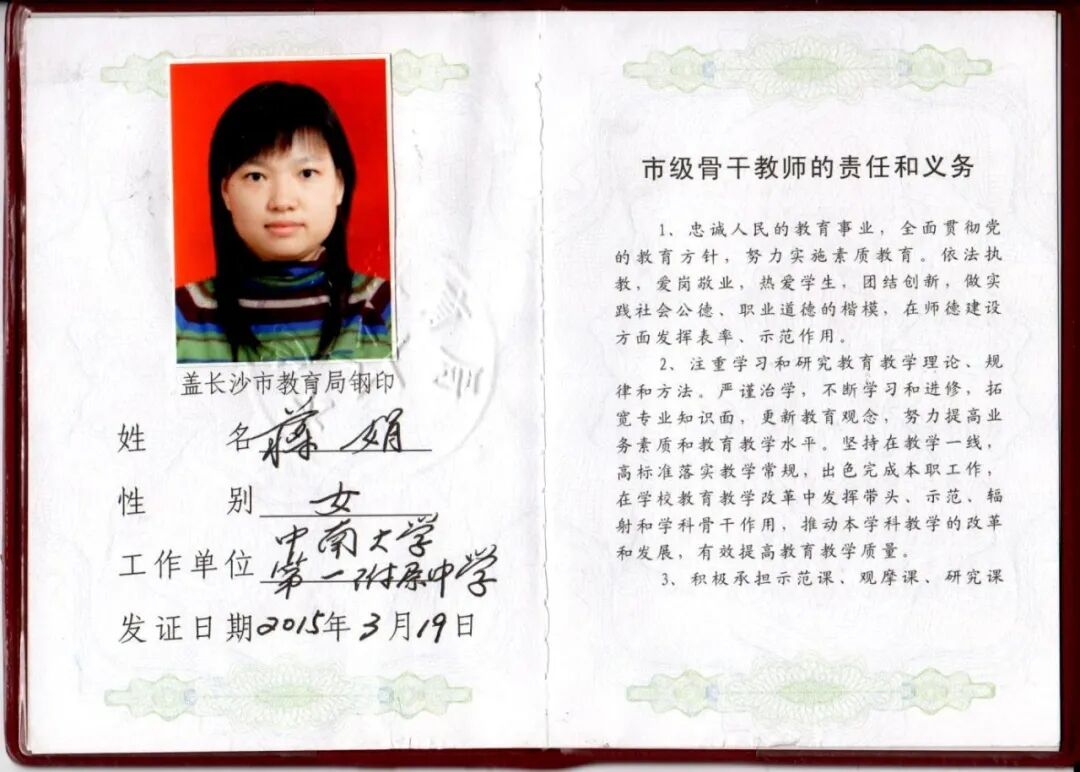 盖长沙市教育局钢印
姓 名 娟
性 别 女
工作单位 中南大学
第一附属中学
发证日期2015年3月19日
市级骨干教师的责任和义务
1、忠诚人民的教育事业，全面贯彻党
的教育方针，努力实施素质教育。依法执
教，爱岗敬业，热爱学生，团结创新，做实
践社会公德、职业道德的楷模，在师德建设
方面发挥表率、示范作用。
2、注重学习和研究教育教学理论、规
律和方法。严谨治学，不断学习和进修，拓
宽专业知识面，更新教育观念，努力提高业
务素质和教育教学水平。坚持在教学一线，
高标准落实教学常规，出色完成本职工作，
在学校教育教学改革中发挥带头、示范、辐
射和学科骨干作用，推动本学科教学的改革
和发展，有效提高教育教学质量。
3、积极承担示范课、观摩课、研究课